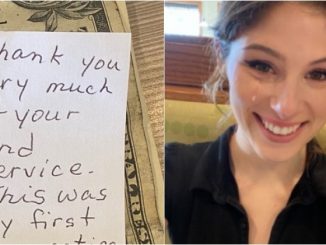 Thank you
ery much
r your
nd
ervice.
This was
y first